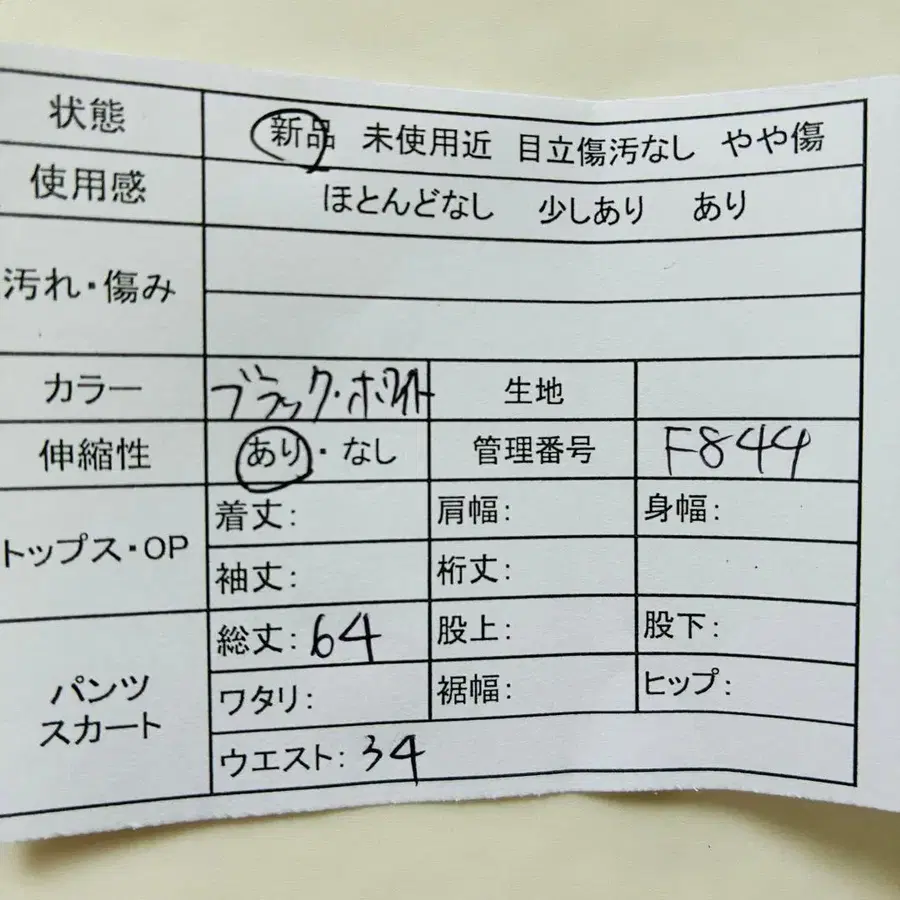 状態 新品 未使用近 目立傷汚なし やや傷
使用感 ほとんどなし 少しあり あり
汚れ・傷み
カラー ブラック・ホワイト 生地
伸縮性 あり・なし 管理番号 F844
トップス・OP 着丈: 肩幅: 身幅:
袖丈: 裄丈:
パンツ スカート 総丈: 64 股上: 股下:
ワタリ: 裾幅: ヒップ:
ウエスト: 34